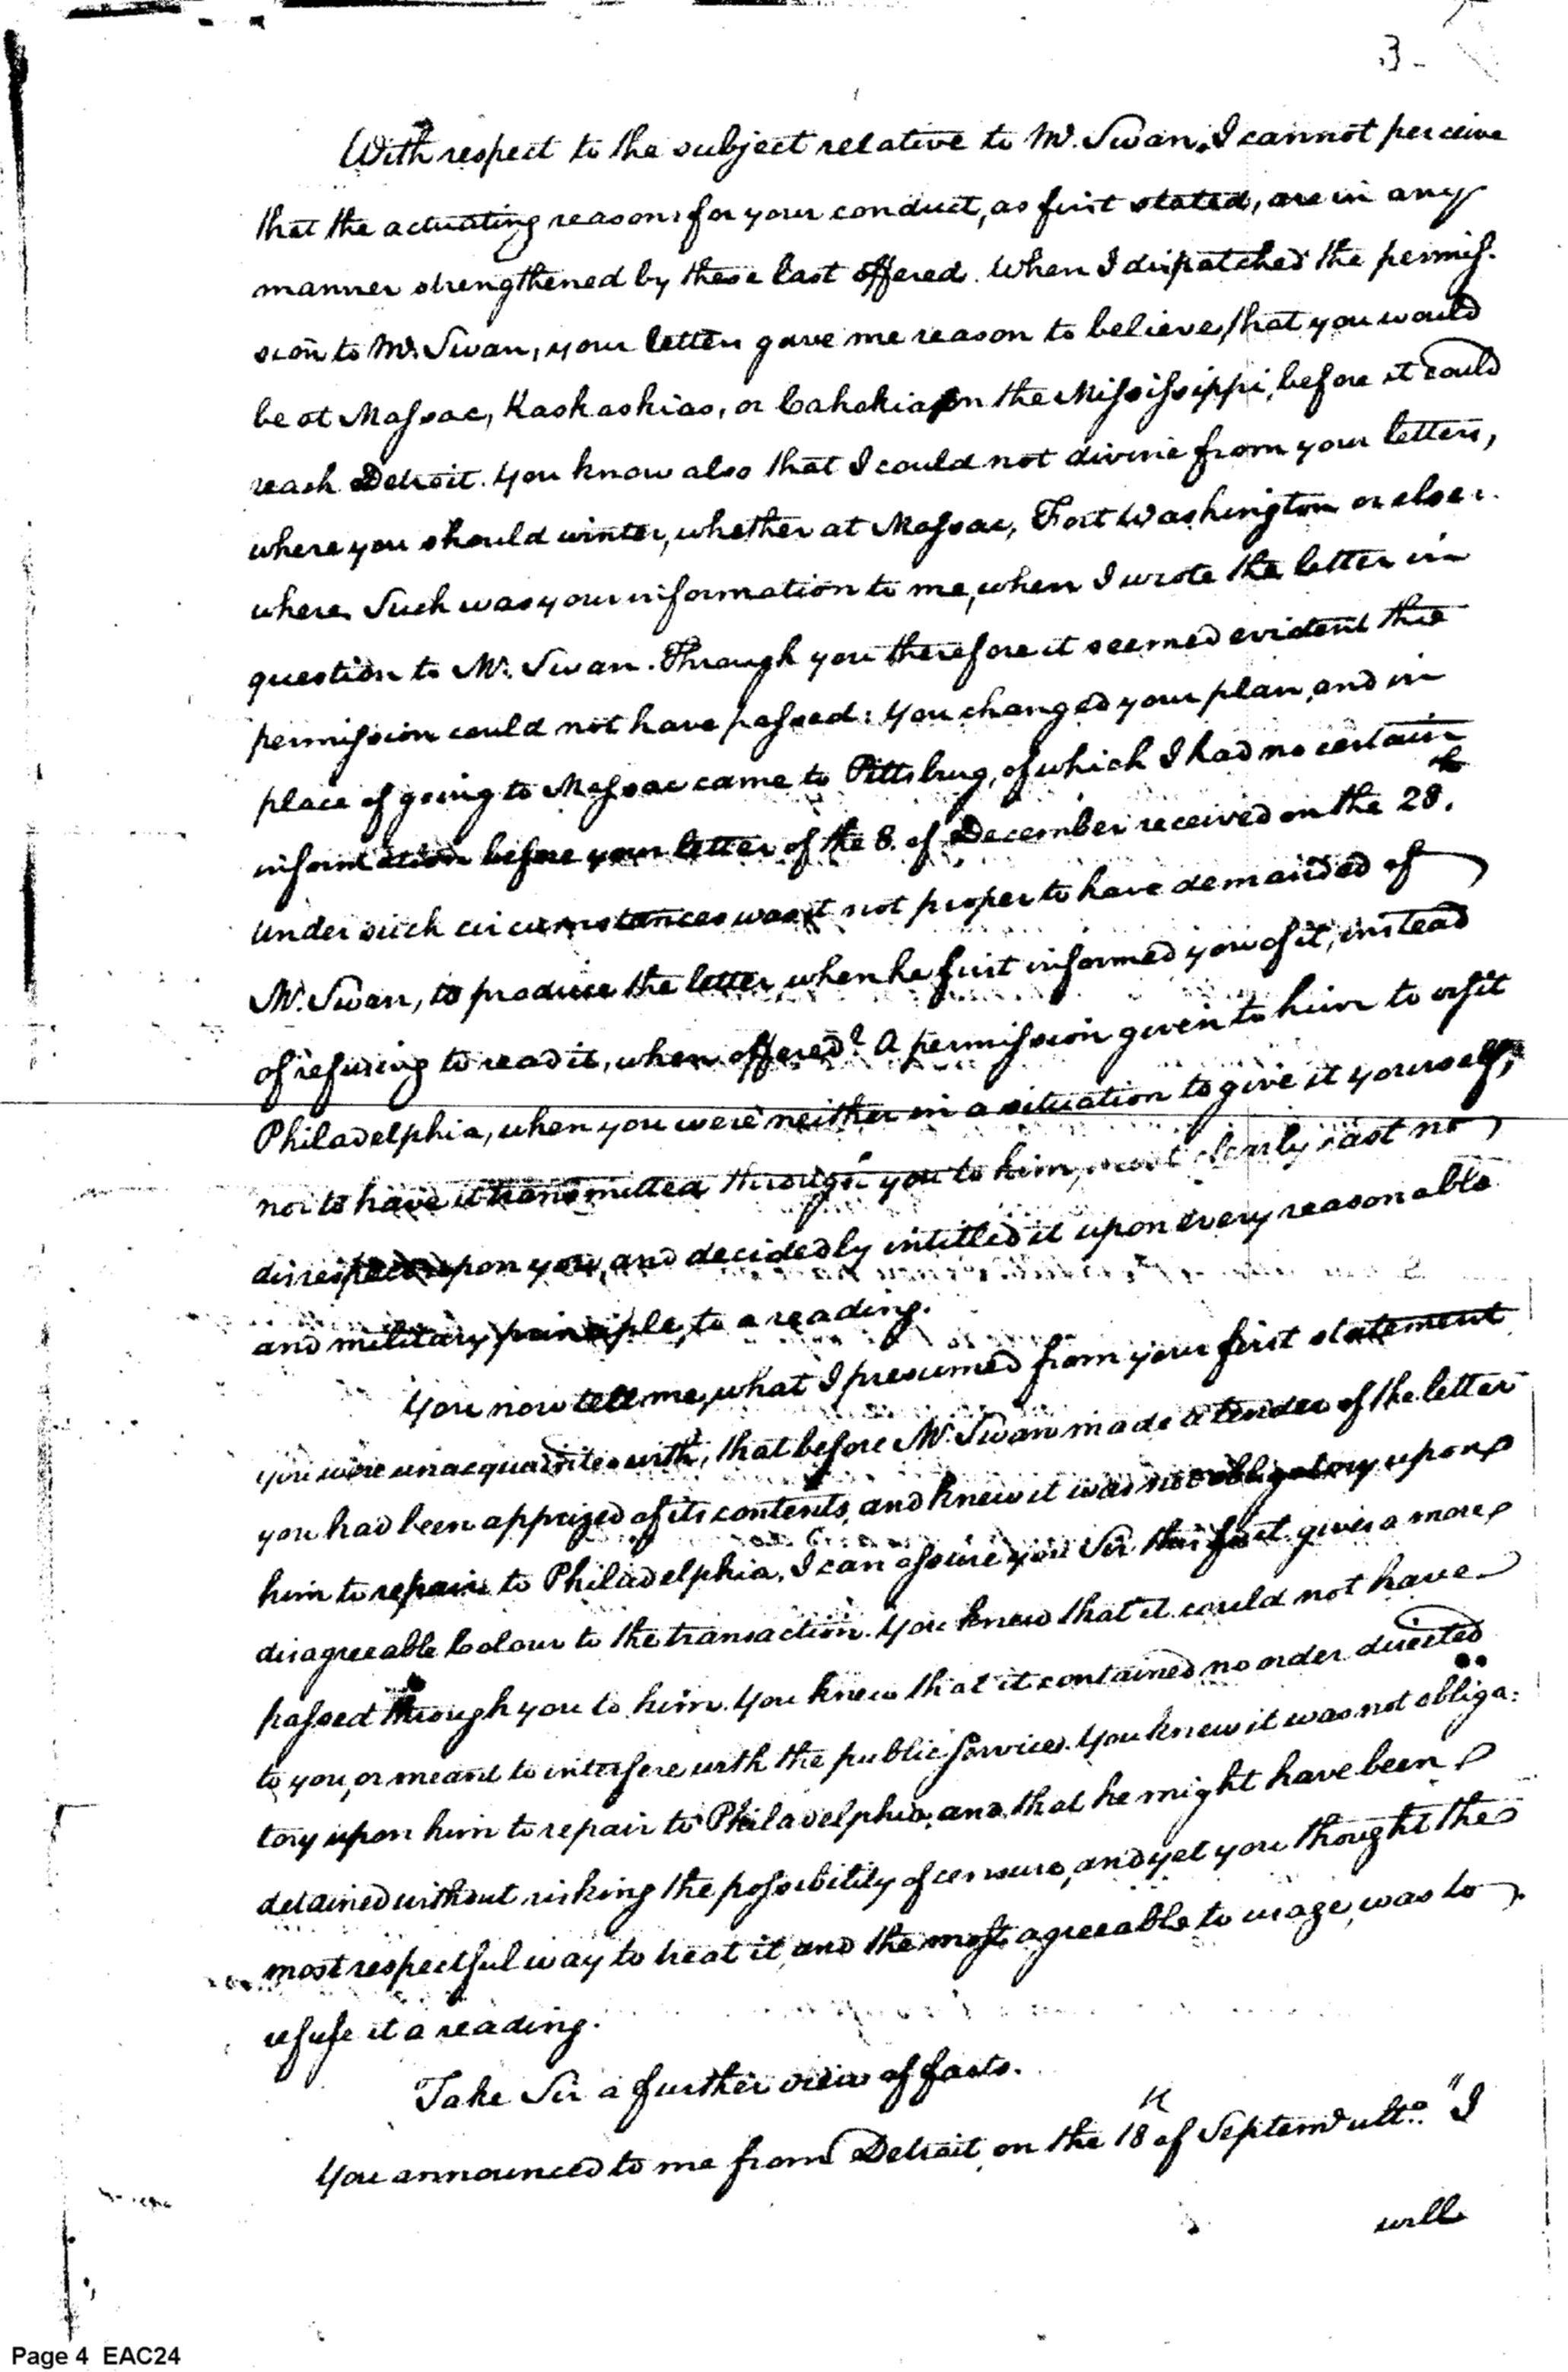 3-
With respect to the subject relative to Mr. Swan, I cannot perceive
that the actuating reasons for your conduct, as first stated, are in any
manner strengthened by these last offered. When I dispatched the permis-
sion to Mr. Swan, your letters gave me reason to believe, that you would
be at Massac, Kaskaskias, or Cahokia on the Mississippi, before it could
reach Detroit. You know also that I could not divine from your letters,
where you should winter, whether at Massac, Fort Washington or else-
where. Such was your information to me, when I wrote the letter in
question to Mr. Swan. Through you therefore it seemed evident the
permission could not have passed: You changed your plan, and in
place of going to Massac came to Pittsburg, of which I had no certain
information before your letter of the 8. of December received on the 28th.
Under such circumstances was it not proper to have demanded of
Mr. Swan, to produce the letter, when he first informed you of it, instead
of refusing to read it, when offered? A permission given to him to visit
Philadelphia, when you were neither in a situation to give it yourself,
nor to have it transmitted through you to him, most clearly cast no
disrespect upon you, and decidedly intitled it upon every reasonable
and military principle, to a reading.
You now tell me, what I presumed from your first statement
you were unacquainted with, that before Mr. Swan made a tender of the letter
you had been apprized of its contents, and knew it was not obligatory upon
him to repair to Philadelphia. I can assure you Sir this fact gives a more
disagreeable Colour to the transaction. You knew that it could not have
passed through you to him. You knew that it contained no order directed
to you, or meant to interfere with the public service. You knew it was not obliga-
tory upon him to repair to Philadelphia, and that he might have been
detained without risking the possibility of censure, and yet you thought the
most respectful way to treat it, and the most agreeable to usage, was to
refuse it a reading.
Take Sir a further view of facts.
You announced to me from Detroit, on the 18th of Septemr ulto. "I
will
Page 4 EAC24